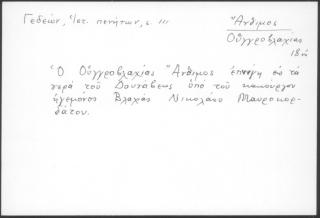 Γεδεών, Ἱστ. πενήτων, σ. 111
Ἄνθιμος
Οὑγγροβλαχίας
18η
Ὁ Οὑγγροβλαχίας Ἄνθιμος ἐπνίγη εἰς τὰ
νερὰ τοῦ Δουνάβεως ὑπὸ τοῦ κακούργου
ἡγεμόνος Βλαχίας Νικολάου Μαυροκορ-
δάτου.